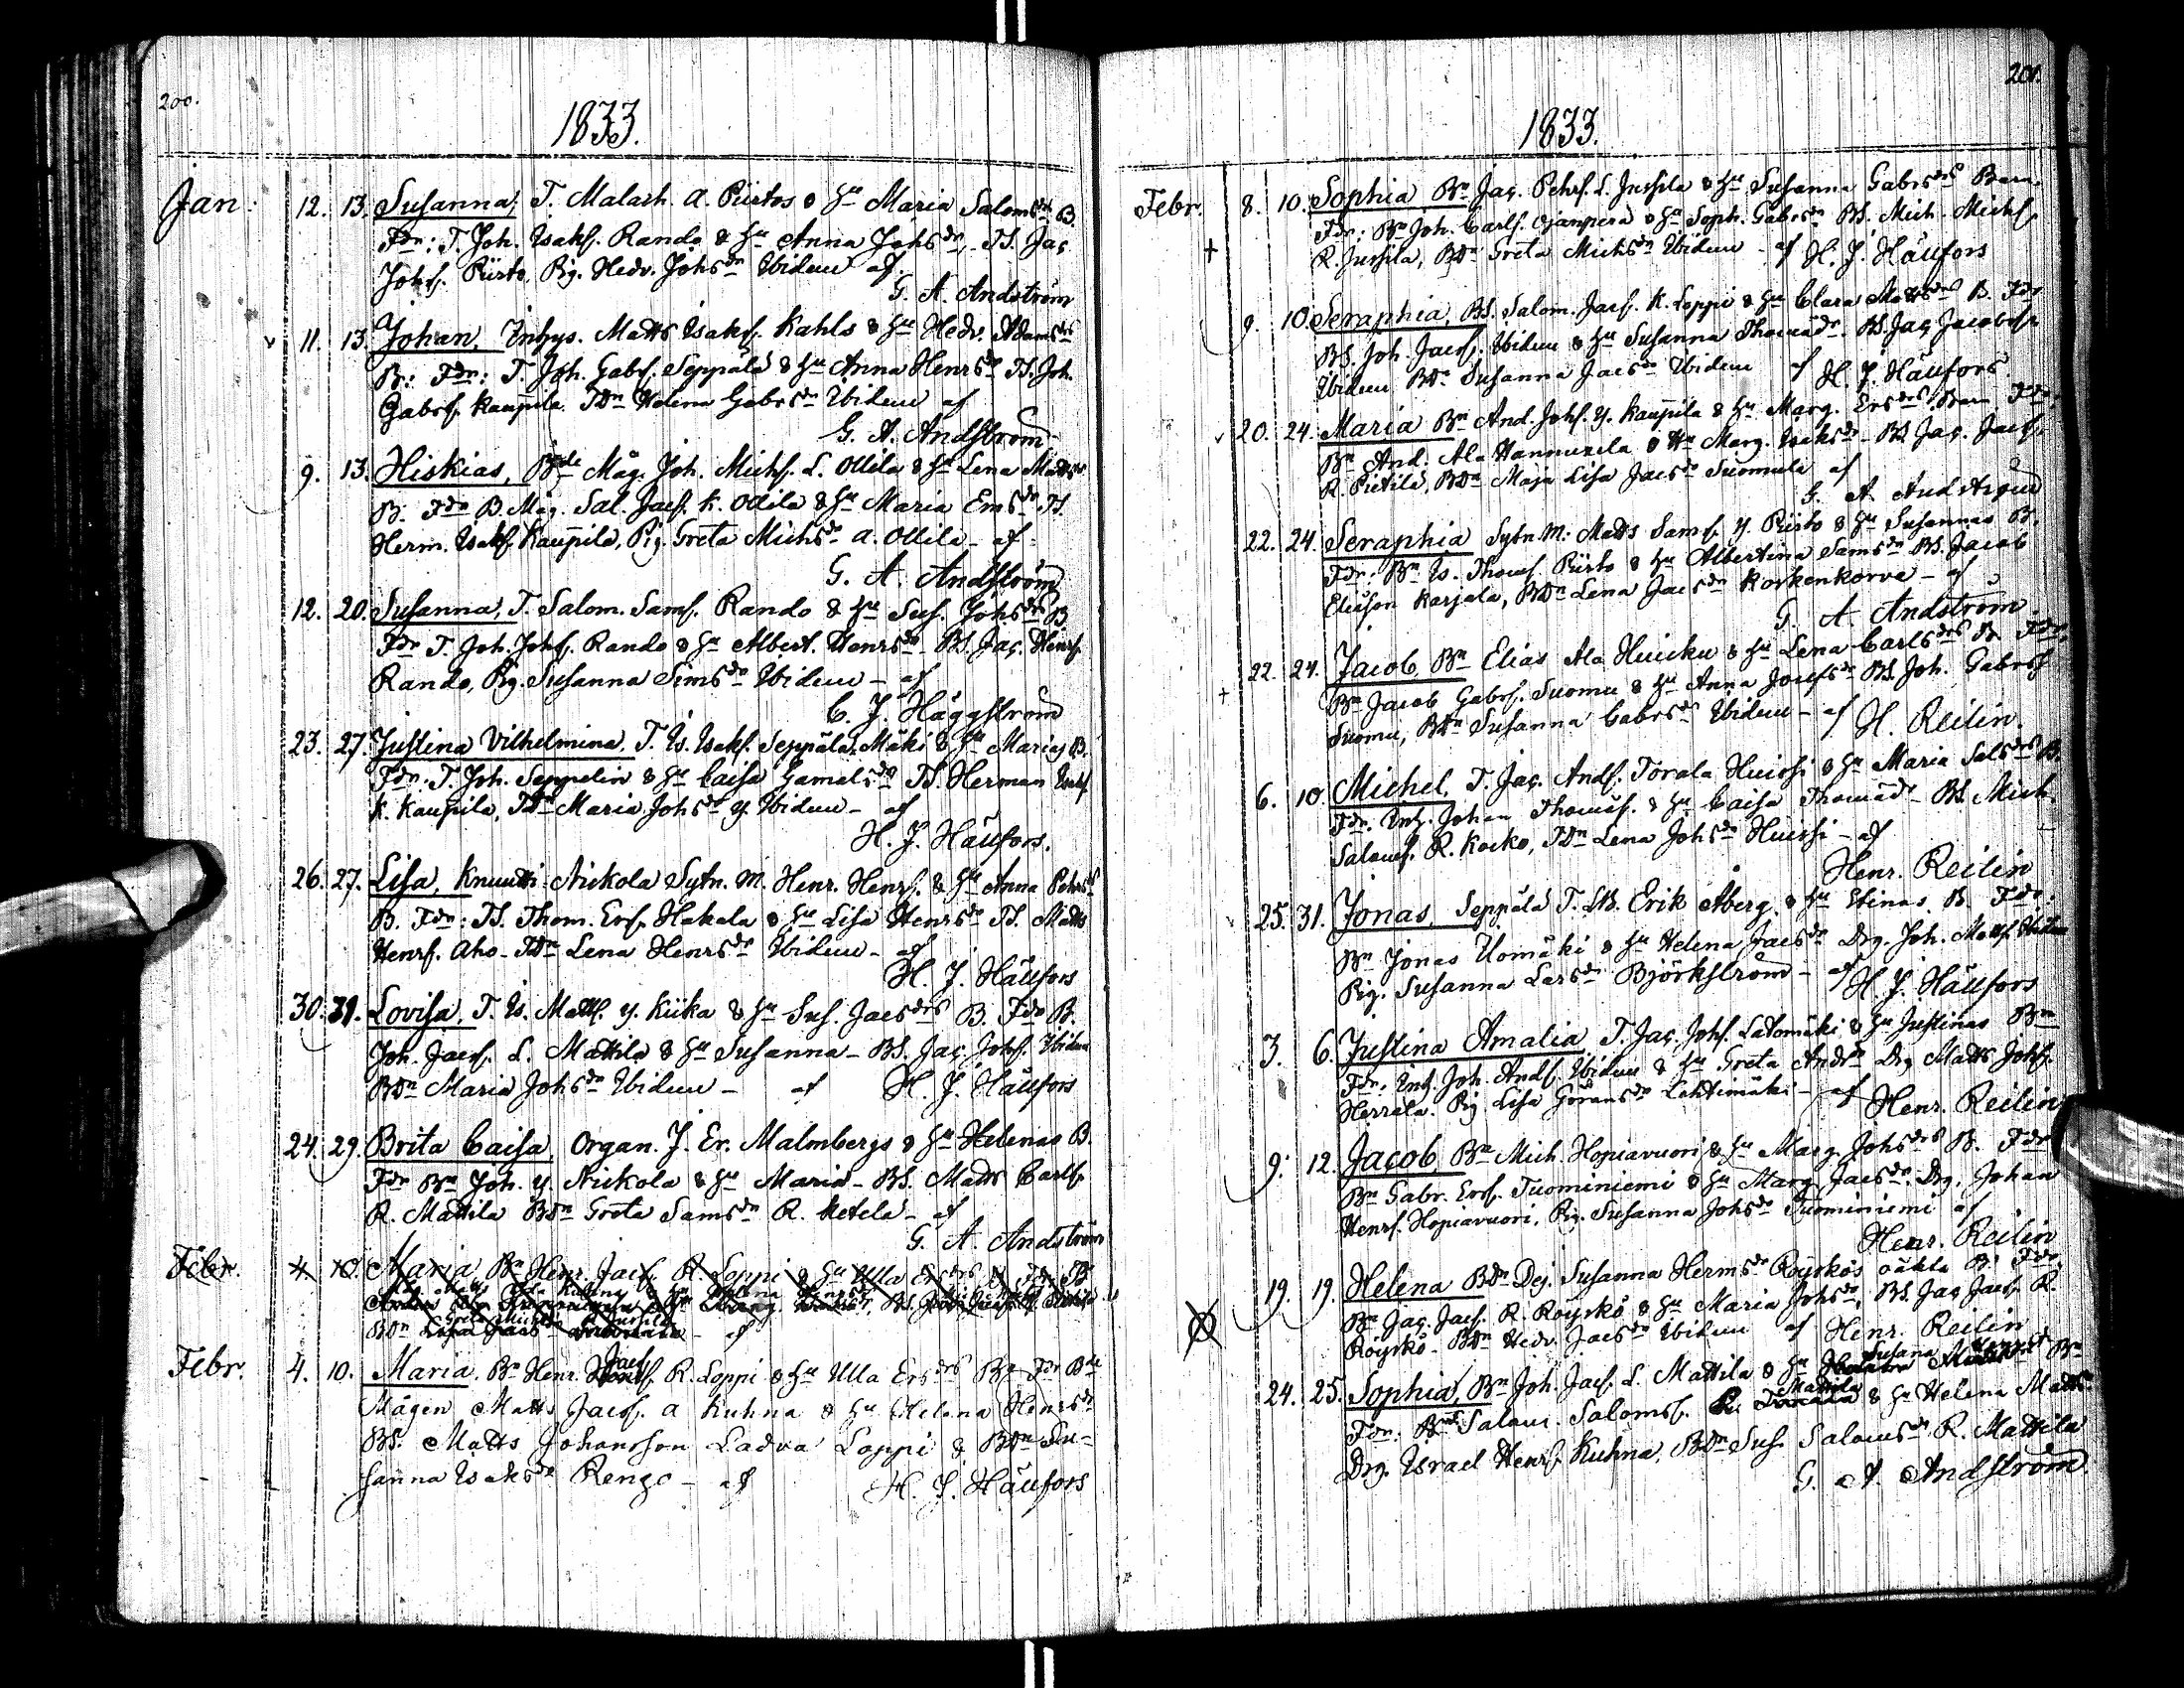 200.
1833.
Jan:
12. 13. Susanna, T. Malach. A. Piirtos & hu Maria Salomsdrs B.
Fdr: T. Joh. Isaksf. Rando & hu Anna Johsdr, TS. Jac.
Johsf. Piirto, Pig. Hedv. Johsdr Ibidem af
G. A. Andström
11. 13. Johan, Inhys. Matts Isaksf. Kahls & hu Hedv. Adamsdrs
B: Fdr: T. Joh. Gabrsf. Seppälä & hu Anna Henrsdr TS. Joh.
Gabrsf. Kaupila. TDr Helena Gabrsdr Ibidem af
G. A. Andström
9. 13. Hiskias, Bde Måg. Joh. Michsf. L. Ollila & hu Lena Mattsdrs
B. Fdr B. Måg. Sal. Jacsf. K. Ollila & hu Maria Emsdr TS.
Herm. Isaksf. Kaupila, Pig. Greta Michsdr A. Ollila - af
G. A. Andström
12. 20. Susanna, T. Salom. Samsf. Rando & hu Sus. Johsdrs B
Fdr T. Joh. Johsf. Rando & hu Albert. Henrsdr - BS. Jac. Henrsf.
Rando, Pig. Susanna Simsdr Ibidem - af
C. J. Häggström
23. 27. Justina Vilhelmina, T. Is. Isaksf. Seppälä Mäki & hu Marias B.
Fdr: T. Joh. Seppelin & hu Caisa Gamalisdr TS. Herman Isaksf.
K. Kaupila, TDr Maria Johsdr Y. Ibidem - af
H. J. Häufors.
26. 27. Lisa, Knuutti-Nickola Sytn. M. Henr. Henrsf. & hu Anna Pehrsdrs
B. Fdr: TS. Thom. Ersf. Hakala & hu Lisa Henrsdr TS. Matts
Henrsf. Aho - TDr Lena Henrsdr Ibidem - af
H. J. Häufors
30. 31. Lovisa, T. Is. Mattsf. Y. Kiika & hu Sus. Jacsdrs B. Fdr B.
Joh. Jacsf. L. Mattila & hu Susanna - BS. Jac. Johsf. Ibidem
BDr Maria Johsdr Ibidem - af H. J. Häufors
24. 29. Brita Caisa, Organ. J. Er. Malmbergs & hu Helenas B.
Fdr Bn Joh. Y. Nickola & hu Maria - BS. Matts Carlsf.
R. Mattila BDr Greta Samsdr R. Ketela - af
G. A. Andström
Febr. 4. 10. Maria Bn Henr. Jacsf. R. Loppi & hu Ulla Ersdrs B. Fdr Bde
Febr. 4. 10. Maria, Bn Henr. Jacsf. R. Loppi & hu Ulla Ersdrs B. Fdr Bde
Mågen Matts Jacsf. A Kuhna & hu Helena Henrsdr
BS. Matts Johansson Ladva Loppi & BDr Su-
sanna Isaksdr Rengo - af H. J. Häufors
201.
1833.
Febr. 8. 10. Sophia, Bn Jac. Pehrsf. L. Jussila & hu Susanna Gabrsdrs Barn.
Fdr: Bn Joh. Carlsf. Ojanpera & hu Soph. Gabrsdr BS. Mich. Michsf.
R. Jussila, BDr Greta Michsdr Ibidem - af H. J. Häufors
9. 10. Seraphia, BS. Salom. Jacsf. K. Loppi & hu Clara Mattsdrs B. Fdr
BS. Joh. Jacsf. Ibidem & hu Susanna Thomädr. BS. Jac. Jacobsf.
Ibidem BDr Susanna Jacsdr Ibidem af H. J. Häufors.
20. 24. Maria Bn And. Johsf. Y. Kaupila & hu Marg. Ersdrs Barn Fdr:
Bn And. Ala Hannuxela & Hu Marg. Isaksdr - BS. Jac. Jacsf.
R. Pietilä, BDr Maja Lisa Jacsdr Suomela af
G. A. Andström
22. 24. Seraphia Sytn. M: Matts Samsf. Y. Piirto & hu Susannas B.
Fdr: Bn Is. Thomsf. Piirto & hu Albertina Samsdr BS. Jacob
Eliasson Karjala, BDr Lena Jacsdr Korkenkorva - af
G. A. Andström.
22. 24. Jacob, Bn Elias Ala Huicku & hu Lena Carlsdrs B. Fdr:
Bn Jacob Gabrsf. Suomu & hu Anna Josefsdr BS. Joh. Gabrsf.
Suomu, BDr Susanna Gabrsdr Ibidem - af H. Reilin.
6. 10. Michel, T. Jac. Andsf. Torala Huissi & hu Maria Salsdrs B.
Fdr. Inh. Johan Thomasf. & hu Caisa Thomädr - BS. Mich.
Salomsf. R. Kocko, TDr Lena Johsdr Huissi - af
Henr. Reilin
25. 31. Jonas, Seppälä T. LB. Erik Åberg & hu Stinas B. Fdr:
Bn Jonas Uomäki & hu Helena Jacsdr Drg. Joh. Mattsf. Ibidem
Pig. Susanna Larsdr Björkström - af H. J. Häufors
3. 6. Justina Amalia, T. Jac. Johsf. Latomäki & hu Justinas Brn
Fdr. Inh. Joh. Andsf. Ibidem & hu Greta Andrdr Drg Matts Johsf.
Herrala. Pig. Lisa Göransdr Lahtimäki - af Henr. Reilin
9. 12. Jacob, Bn Mich. Hopiavuori & hu Marg. Johsdrs B. Fdr
Bn Gabr. Ersf. Tuominiemi & hu Marg. Jacsdr. Drg. Johan
Henrsf. Hopiavuori, Pig. Susanna Johsdr Tuominiemi af
Henr. Reilin
19. 19. Helena BDr Dej. Susanna Hermsdr Röyskös oäkta B. Fdr
Bn Jac. Jacsf. R. Röyskö & hu Maria Johsdr, BS. Jac. Jacsf. R.
Röyskö - BDr Hedv. Jacsdr Ibidem af Henr. Reilin
24. 25. Sophia, Bn Joh. Jacsf. L. Mattila & hu Susana Brn
Fdr: Bnd Salom. Salomsf. Mattila & hu Helena Matts
Drg. Israel Henrsf. Kuhna, BDr Sus. Salomsdr R. Mattila
G. A. Andström